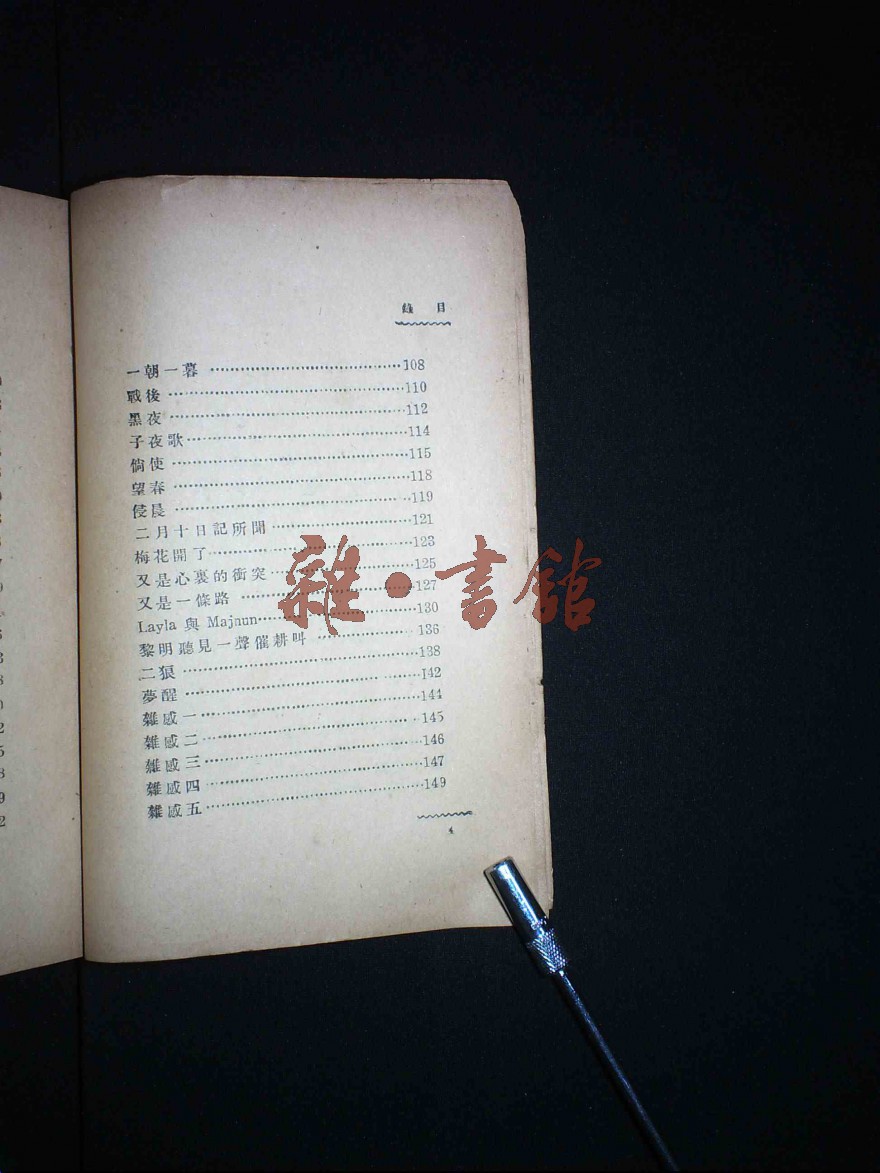 錄目
一朝一暮 108
戰後 110
黑夜 112
子夜歌 114
倘使 115
望春 118
侵晨 119
二月十日記所聞 121
梅花開了 123
又是心裏的衝突 125
又是一條路 127
Layla 與 Majnun 130
黎明聽見一聲催耕叫 136
二狼 138
夢醒 142
雜感一 144
雜感二 145
雜感三 146
雜感四 147
雜感五 149
4
雜·書館